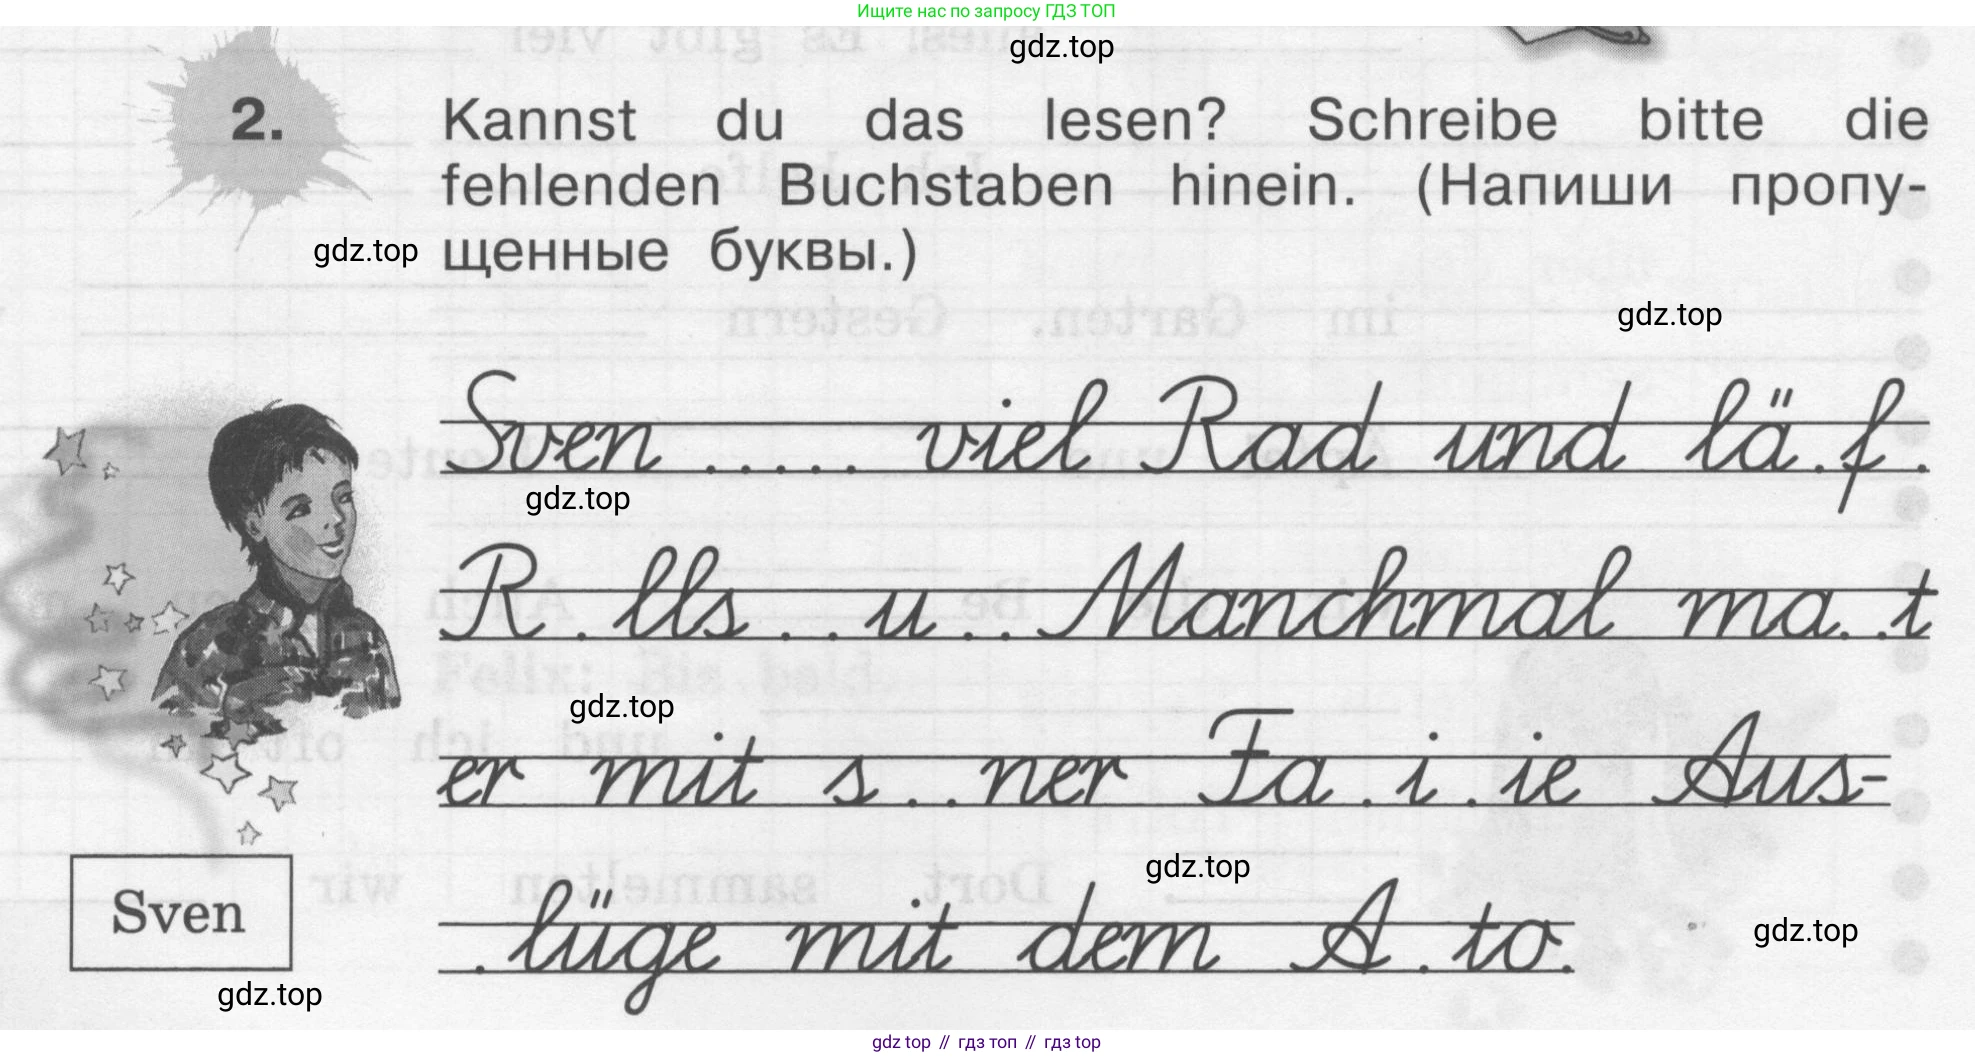 Ищите нас по запросу ГДЗ ТОП
gdz.top
2. Kannst du das lesen? Schreibe bitte die
fehlenden Buchstaben hinein. (Напиши пропу-
щенные буквы.)
gdz.top
gdz.top
Sven ..... viel Rad und lä.f.
gdz.top
R.lls..u.. Manchmal ma..t
gdz.top
er mit s..ner Fa.i.ie Aus-
gdz.top
.lüge mit dem A.to.
Sven
gdz.top
gdz.top
gdz top // гдз топ // гдз top